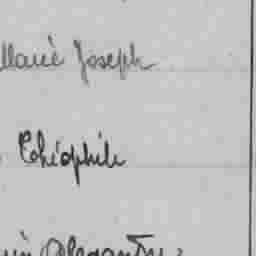 Marie Joseph
Théophile
Alexandre